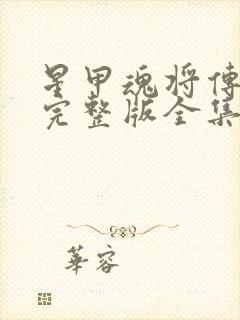 星甲魂将傳
完整版全集
華容